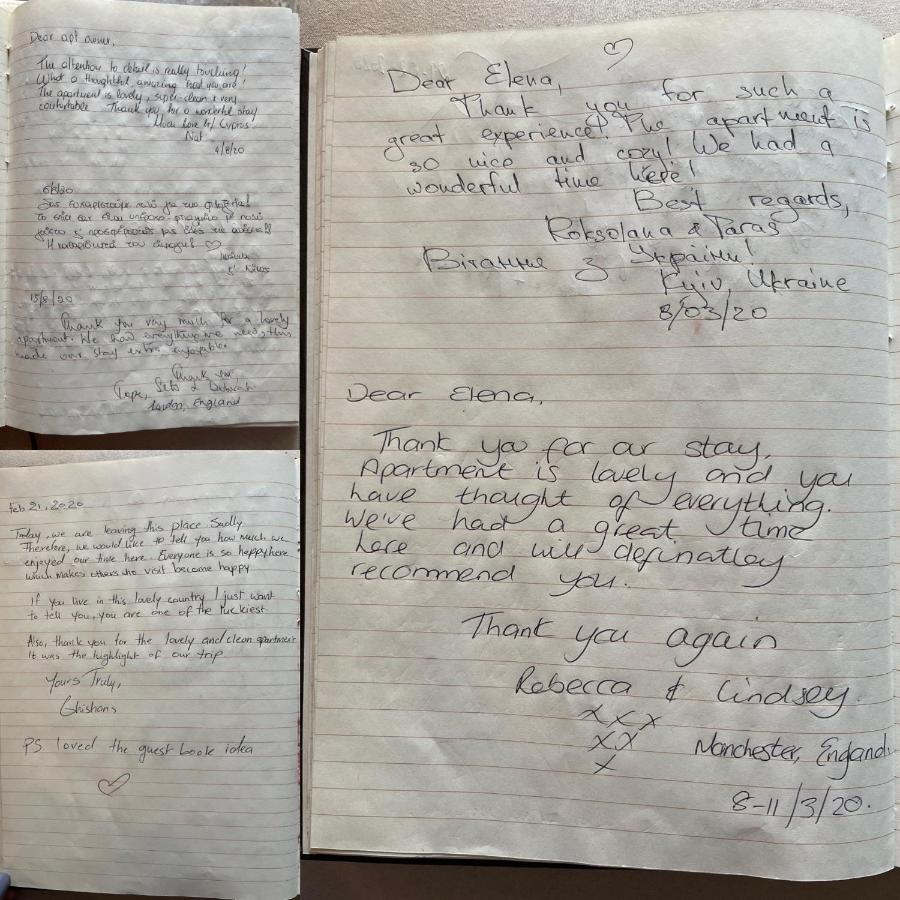 Dear apt owner,
The attention to detail is really touching!
What a thoughtful amazing host you are!
The apartment is lovely, super clean & very
comfortable. Thank you for a wonderful stay
Much love
Nat
4/8/20
6/8/20
Σας ευχαριστούμε πολύ για την φιλοξενία!
Το σπίτι σας είναι υπέροχο! φτιαγμένο με πολύ
Η καθαριότητα του άψογη! ♡
15/8/20
Thank you very much for a lovely
apartment. We had everything we need, this
made our stay extra enjoyable.
Thank you,
London, England
Feb 21, 2020
Today, we are leaving this place Sadly
Therefore, we would like to tell you how much we
enjoyed our time here. Everyone is so happy here
which makes others who visit become happy
If you live in this lovely country I just want
to tell you, you are one of the luckiest
Also, thank you for the lovely and clean apartment
It was the highlight of our trip
Yours Truly,
Ghishans
PS loved the guest book idea
♡
♡
Dear Elena,
Thank you for such a
great experience! The apartment is
so nice and cozy! We had a
wonderful time here!
Best regards,
Roksolana & Taras
Вітання з України!
Kyiv, Ukraine
8/03/20
Dear Elena,
Thank you for our stay.
Apartment is lovely and you
have thought of everything.
We've had a great time
here and will definatley
recommend you.
Thank you again
Rebecca & Lindsey.
xxx
xx
x
Manchester, England.
8-11/3/20.